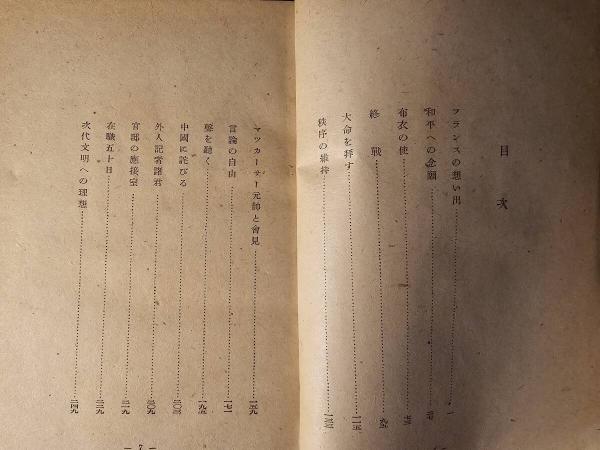 目次
フランスの想い出……一
和平への念願
布衣の使
終戦……九五
大命を拝す……一一五
秩序の維持……一三三
マッカーサー元帥と會見……一五九
言論の自由……一七一
聲を聽く……一九五
中國に詫びる……二〇三
外人記者諸君……二〇九
官邸の應接室……二一九
在職五十日……二二九
次代文明への理想……二四九
— 7 —